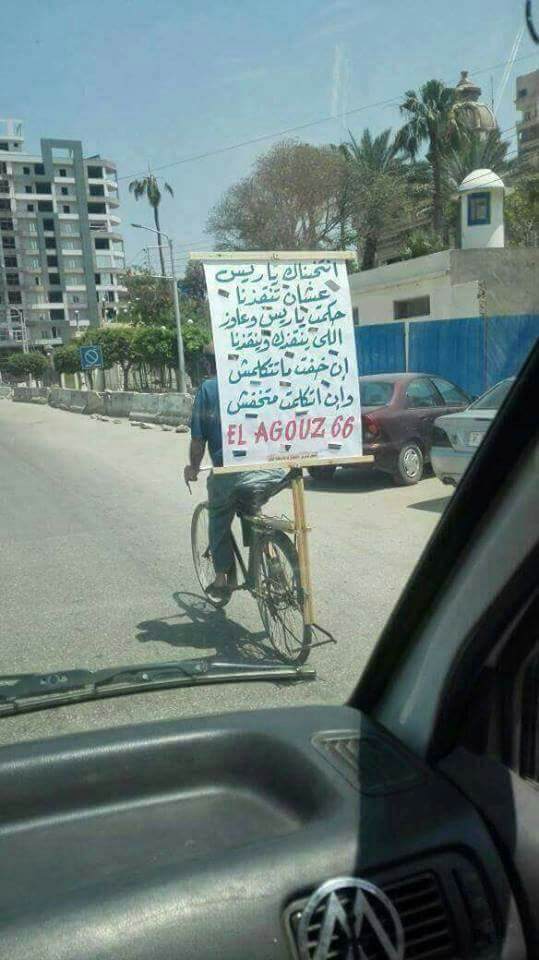 انتخبناك يا ريس
عشان تنقذنا
حكمت يا ريس وعاوز
اللى ينقذك وينقذنا
إن خفت ما تتكلمش
وإن اتكلمت متخفش
EL AGOUZ 66